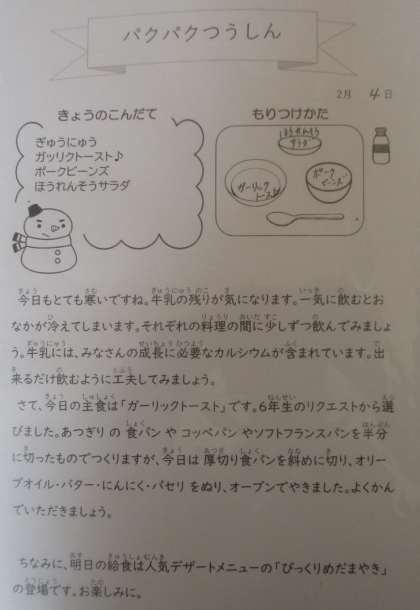 パクパクつうしん
2月 4日
きょうのこんだて
ぎゅうにゅう
ガッリクトースト♪
ポークビーンズ
ほうれんそうサラダ
もりつけかた
ほうれんそう
サラダ
ガーリック
トースト
ポーク
ビーンズ
今日もとても寒いですね。牛乳の残りが気になります。一気に飲むとお
なかが冷えてしまいます。それぞれの料理の間に少しずつ飲んでみましょ
う。牛乳には、みなさんの成長に必要なカルシウムが含まれています。出
来るだけ飲むように工夫してみましょう。
さて、今日の主食は「ガーリックトースト」です。6年生のリクエストから選
びました。あつぎりの 食パン や コッペパン やソフトフランスパンを半分
に切ったものでつくりますが、今日は 厚切り食パンを斜めに切り、オリー
ブオイル・バター・にんにく・パセリ をぬり、オーブンでやきました。よくかん
でいただきましょう。
ちなみに、明日の給食は人気デザートメニューの「びっくりめだまやき」
の登場です。お楽しみに。